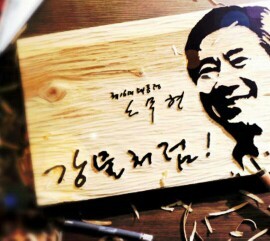 제16대 대통령
노무현
강물처럼!